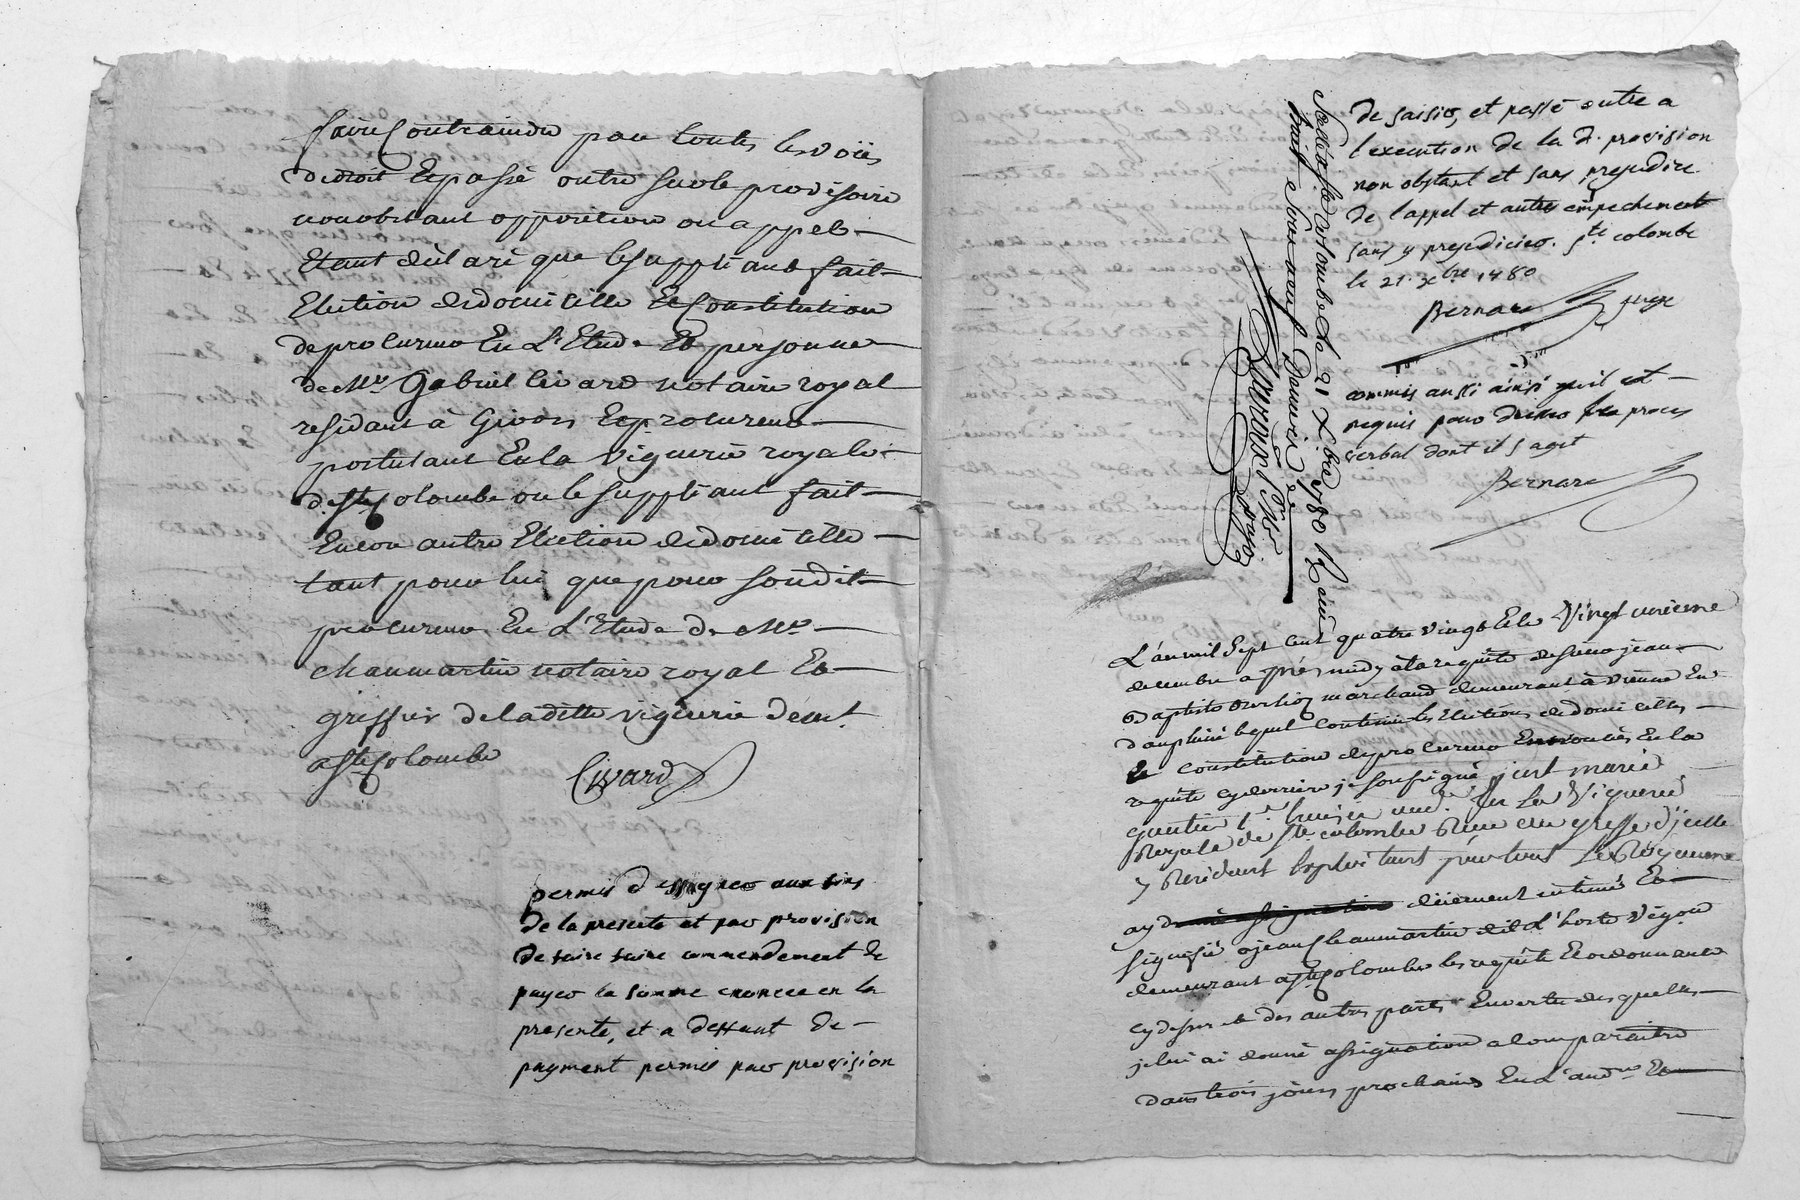 faire Contraindre par toutes les voies
de droit Et passé outre sur le provisoire
nonobstant opposition ou appel
Etant déclaré que le suppliant fait
Election de domicille Et Constitution
de procureur En L'Etude Et personne
de Me Gabriel Civard notaire royal
residant à Givors Et procureur
postulant En la viguerie royale
de Ste Colombe ou le suppliant fait
Encore autre Election de domicille
tant pour lui que pour sondit
procureur En L'Etude de Me
chaumartin notaire royal Et
greffier de la ditte viguerie demt
a Ste Colombe
Civard
permis d'assigner aux fins
de la presente et par provision
de faire faire commendement de
payer la somme enoncee en la
presente, et a deffaut de
payment permis par provision
de saisir, et passé outre a
l'execution de la d. provision
non obstant et sans prejudice
de l'appel et autre empechement
sans y prejudicier. Ste colombe
le 21. Xbre 1780
Bernard juge
commis aussi ainsi qu'il est
requis pour dresser le proces
verbal dont il s'agit
Bernard
Scellé à Ste Colombe le 21 Xbre 1780 Reçu
L'an mil sept cent quatre vingt Et le Vingt unieme
decembre après midy à la requête de sieur jean
Baptiste marchand demeurant à vienne En
dauphiné lequel Continue les Elections de domicilles
Et Constitution de procureur En la
requête cy derriere je soussigné marié
gautier pr huissier aud. En La Viguerie
Royale de Ste colombe Reçu au greffe d'icelle
y Residant Exploitant par tout Le Royaume
ay duement intimé Et
signifié a jean Chaumartin dit L'hoste
demeurant a Ste Colombe les requête Et ordonnance
cy dessus et des autres parts En vertu des quelles
je lui ai donné assignation a Comparaitre
dans trois jours prochains En L'audce Et